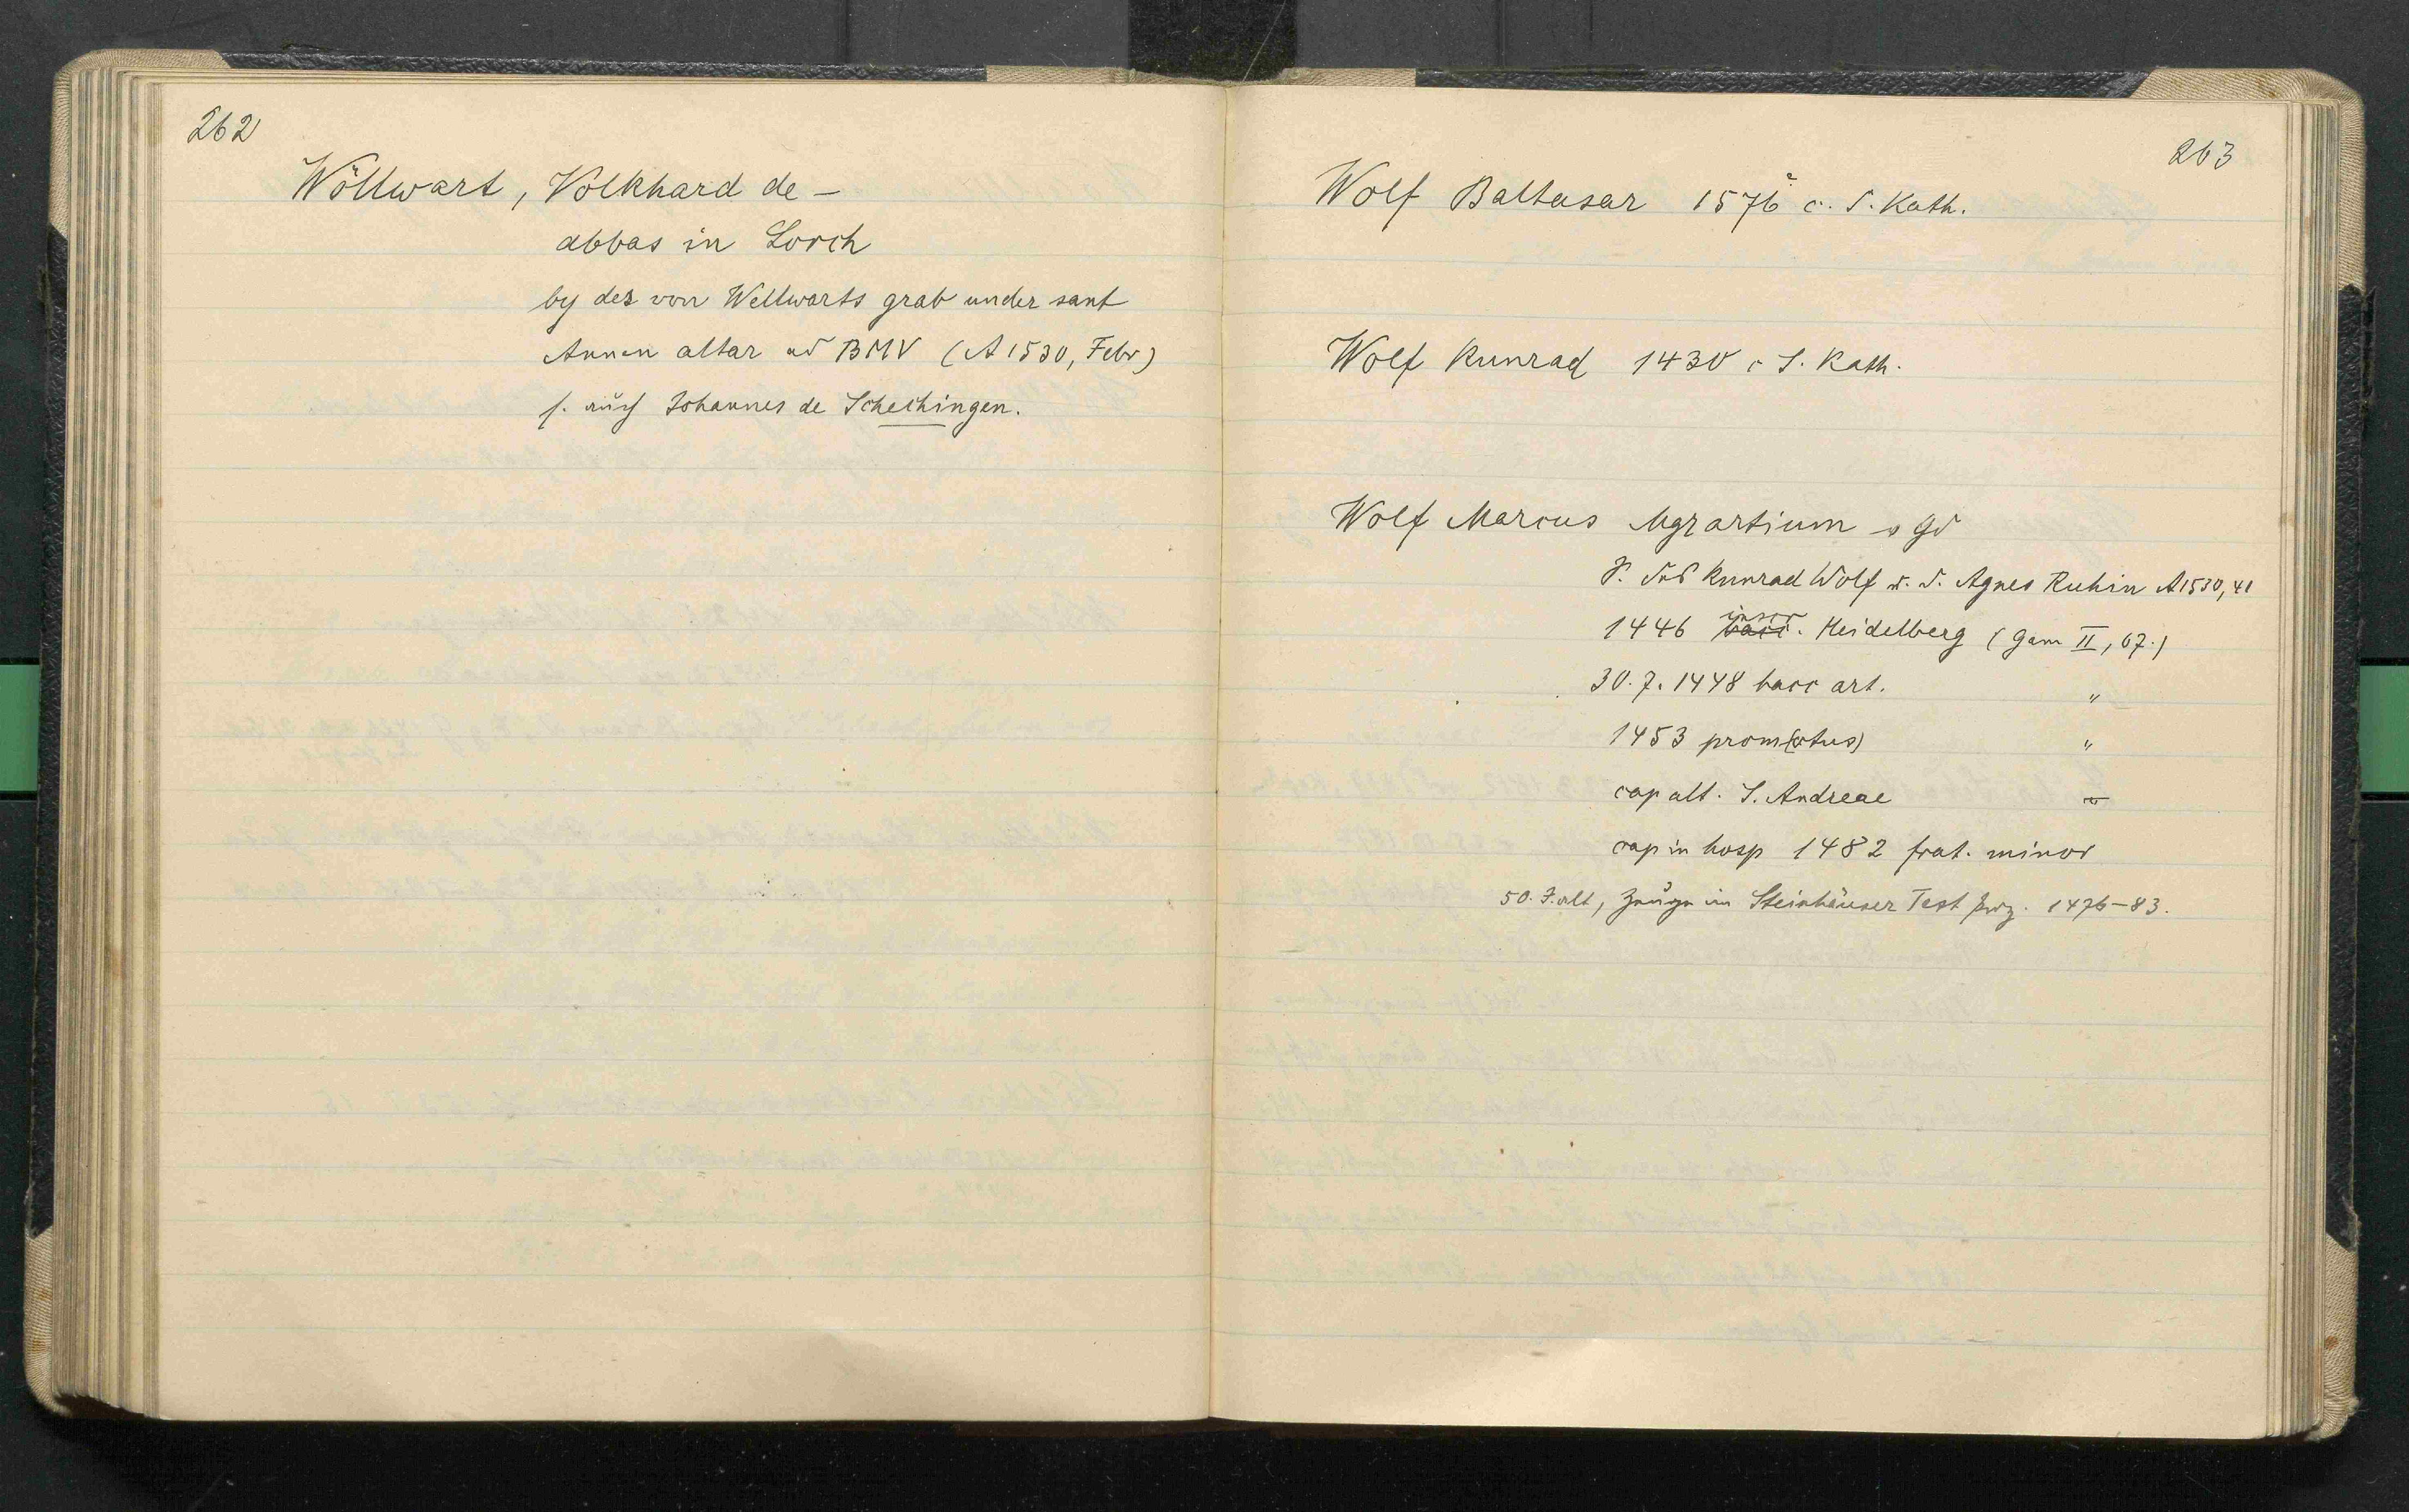 262
Wöllwart, Volkhard de –
abbas in Lorch
by der von Wellwarts grab under sant
Annen altar ad BMV (A 1530, Febr)
s. auch Johannes de Schechingen.
263
Wolf Baltasar 1576 c. S. Kath.
Wolf Kunrad 1430 c S. Kath.
Wolf Marcus Mgr artium Gd
S. des Kunrad Wolf u. d. Agnes Ruhin A 1530, 41
1446 inscr. Heidelberg (Gam II, 67.)
30.7.1448 bacc art. "
1453 prom(otus) "
cap alt. S. Andreae
cap in hosp 1482 frat. minor
50. J. alt, Zeuge im Steinhäuser Test 1476–83.